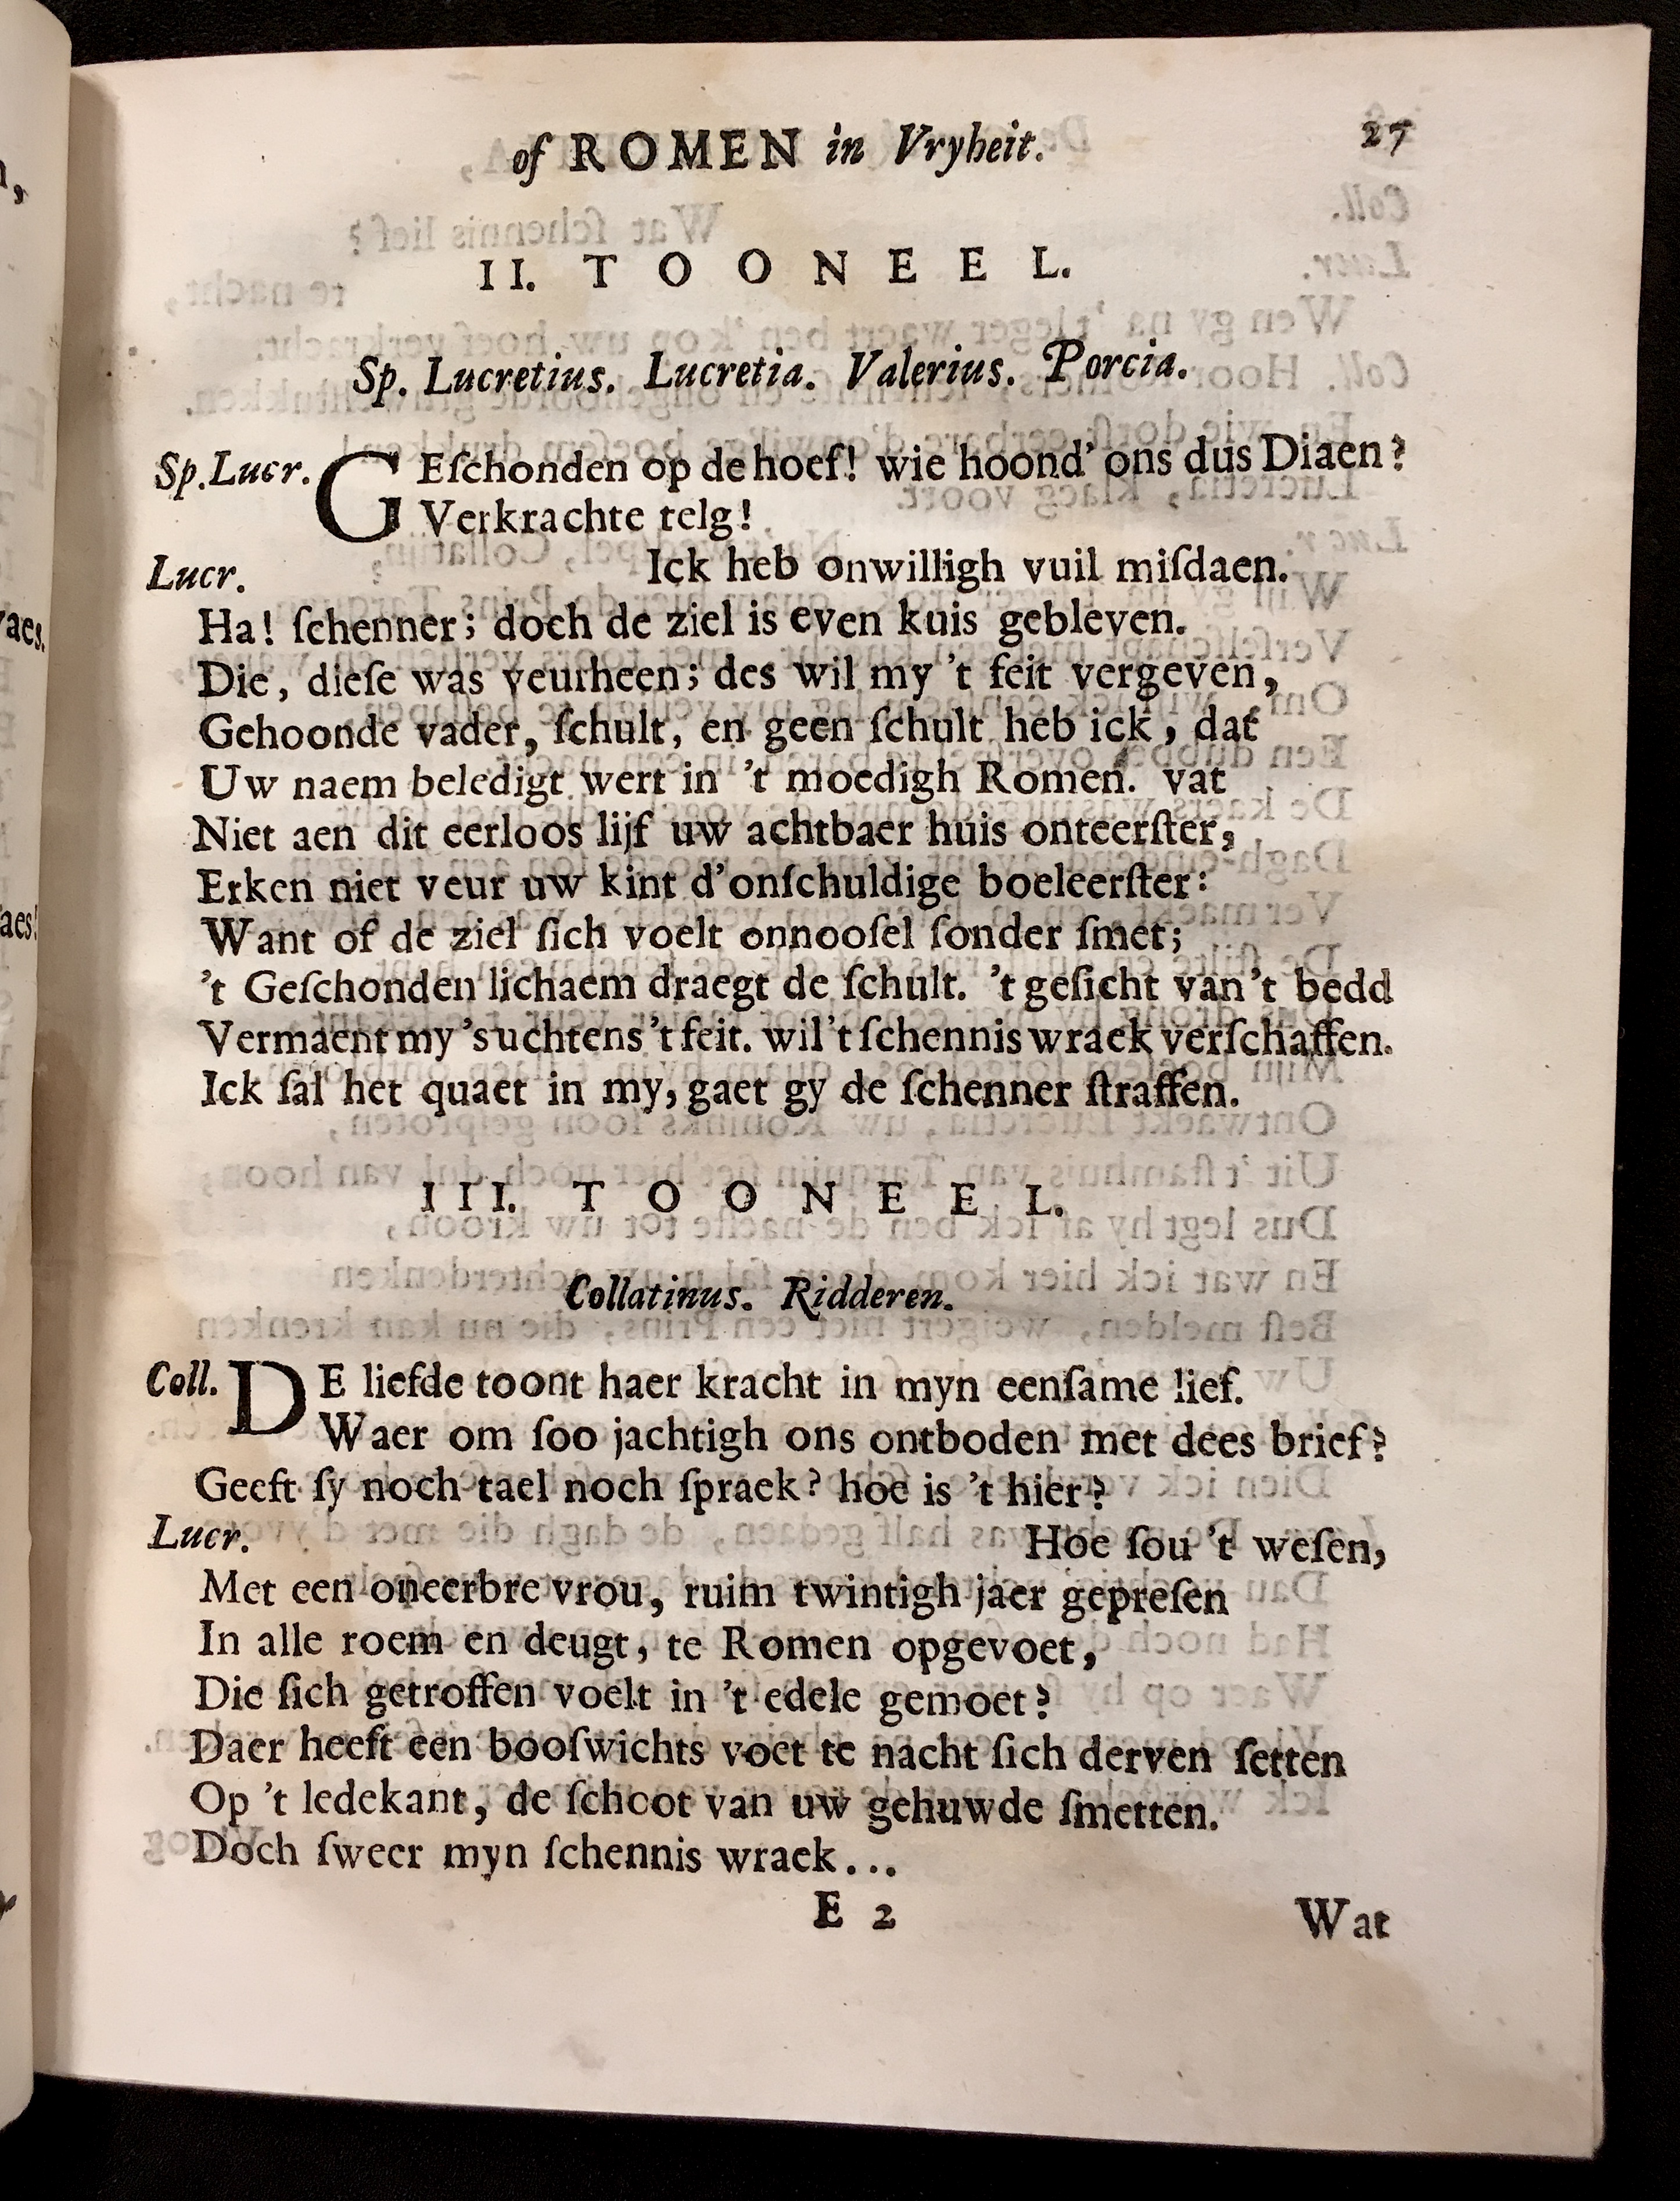 of ROMEN in Vryheit. 27
II. TOONEEL.
Sp. Lucretius. Lucretia. Valerius. Porcia.
Sp. Lucr. GEſchonden op de hoef! wie hoond' ons dus Diaen?
Verkrachte telg!
Lucr. Ick heb onwilligh vuil miſdaen.
Ha! ſchenner; doch de ziel is even kuis gebleven.
Die, dieſe was veurheen; des wil my 't feit vergeven,
Gehoonde vader, ſchult, en geen ſchult heb ick, dat
Uw naem beledigt wert in 't moedigh Romen. vat
Niet aen dit eerloos lijf uw achtbaer huis onteerſter,
Erken niet veur uw kint d'onſchuldige boeleerſter:
Want of de ziel ſich voelt onnooſel ſonder ſmet;
't Geſchonden lichaem draegt de ſchult. 't geſicht van 't bedd
Vermaent my 'suchtens 't feit. wil 't ſchennis wraek verſchaffen.
Ick ſal het quaet in my, gaet gy de ſchenner ſtraffen.
III. TOONEEL.
Collatinus. Ridderen.
Coll. DE liefde toont haer kracht in myn eenſame lief.
Waer om ſoo jachtigh ons ontboden met dees brief?
Geeft ſy noch tael noch ſpraek? hoe is 't hier?
Lucr. Hoe ſou 't weſen,
Met een oneerbre vrou, ruim twintigh jaer gepreſen
In alle roem en deugt, te Romen opgevoet,
Die ſich getroffen voelt in 't edele gemoet?
Daer heeft een booſwichts voet te nacht ſich derven ſetten
Op 't ledekant, de ſchoot van uw gehuwde ſmetten.
Doch ſweer myn ſchennis wraek...
E 2 Wat